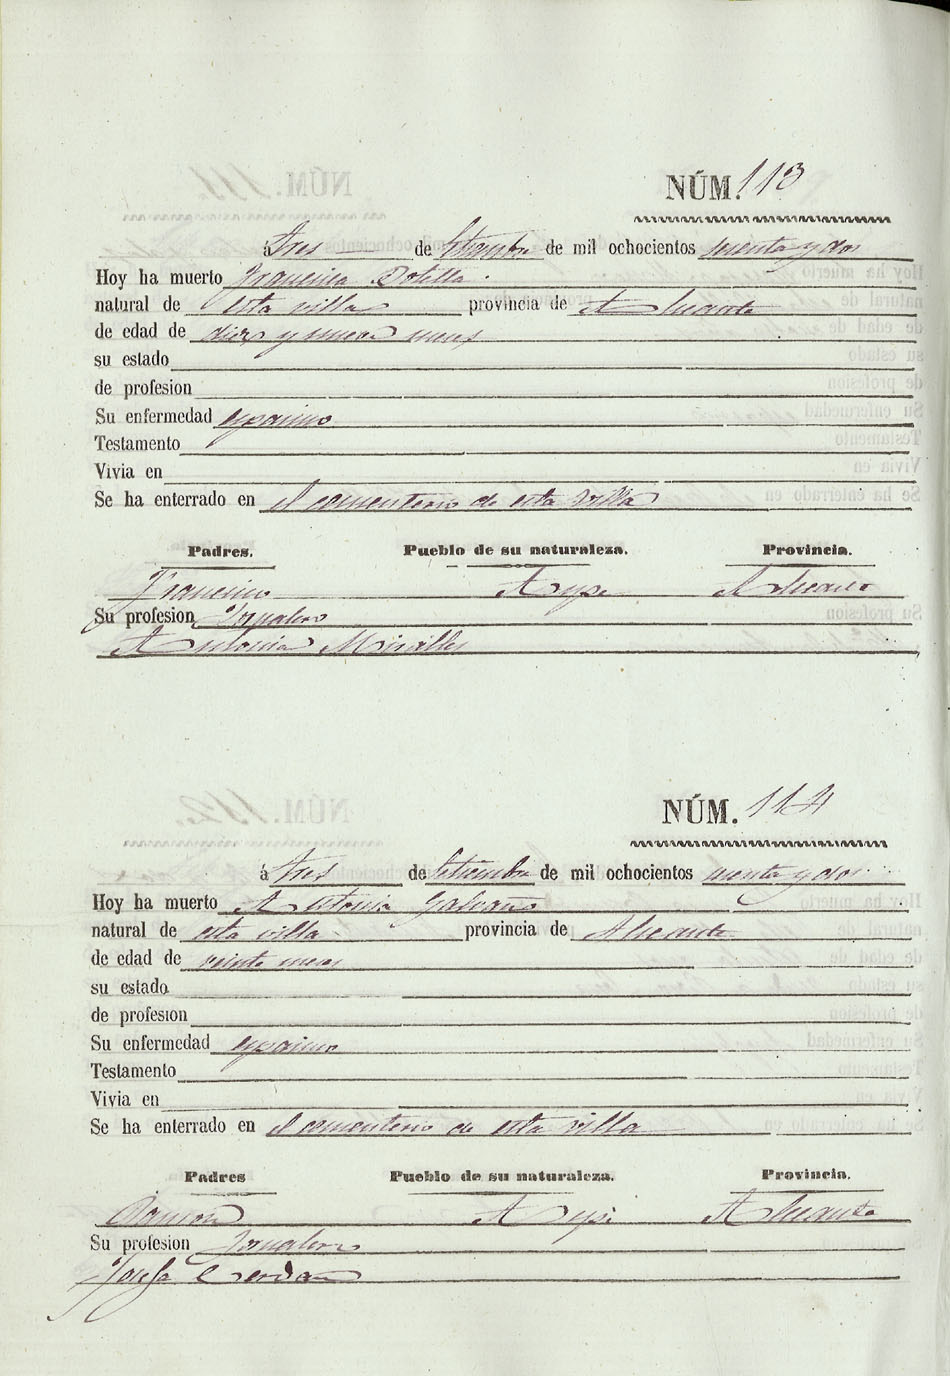 NÚM. 113
á tres de Setiembre de mil ochocientos sesenta y dos
Hoy ha muerto Francisca Botella
natural de esta villa provincia de Alicante
de edad de diez y nueve meses
su estado
de profesion
Su enfermedad espasmo
Testamento
Vivia en
Se ha enterrado en el cementerio de esta villa
Padres. Pueblo de su naturaleza. Provincia.
Francisco Aspe Alicante
Su profesion Jornalero
Antonia Miralles
NÚM. 114
á tres de Setiembre de mil ochocientos sesenta y dos
Hoy ha muerto Antonia Galvañ
natural de esta villa provincia de Alicante
de edad de veinte meses
su estado
de profesion
Su enfermedad espasmo
Testamento
Vivia en
Se ha enterrado en el cementerio de esta villa
Padres Pueblo de su naturaleza. Provincia.
Ramon Aspe Alicante
Su profesion Jornalero
Josefa Cerdan